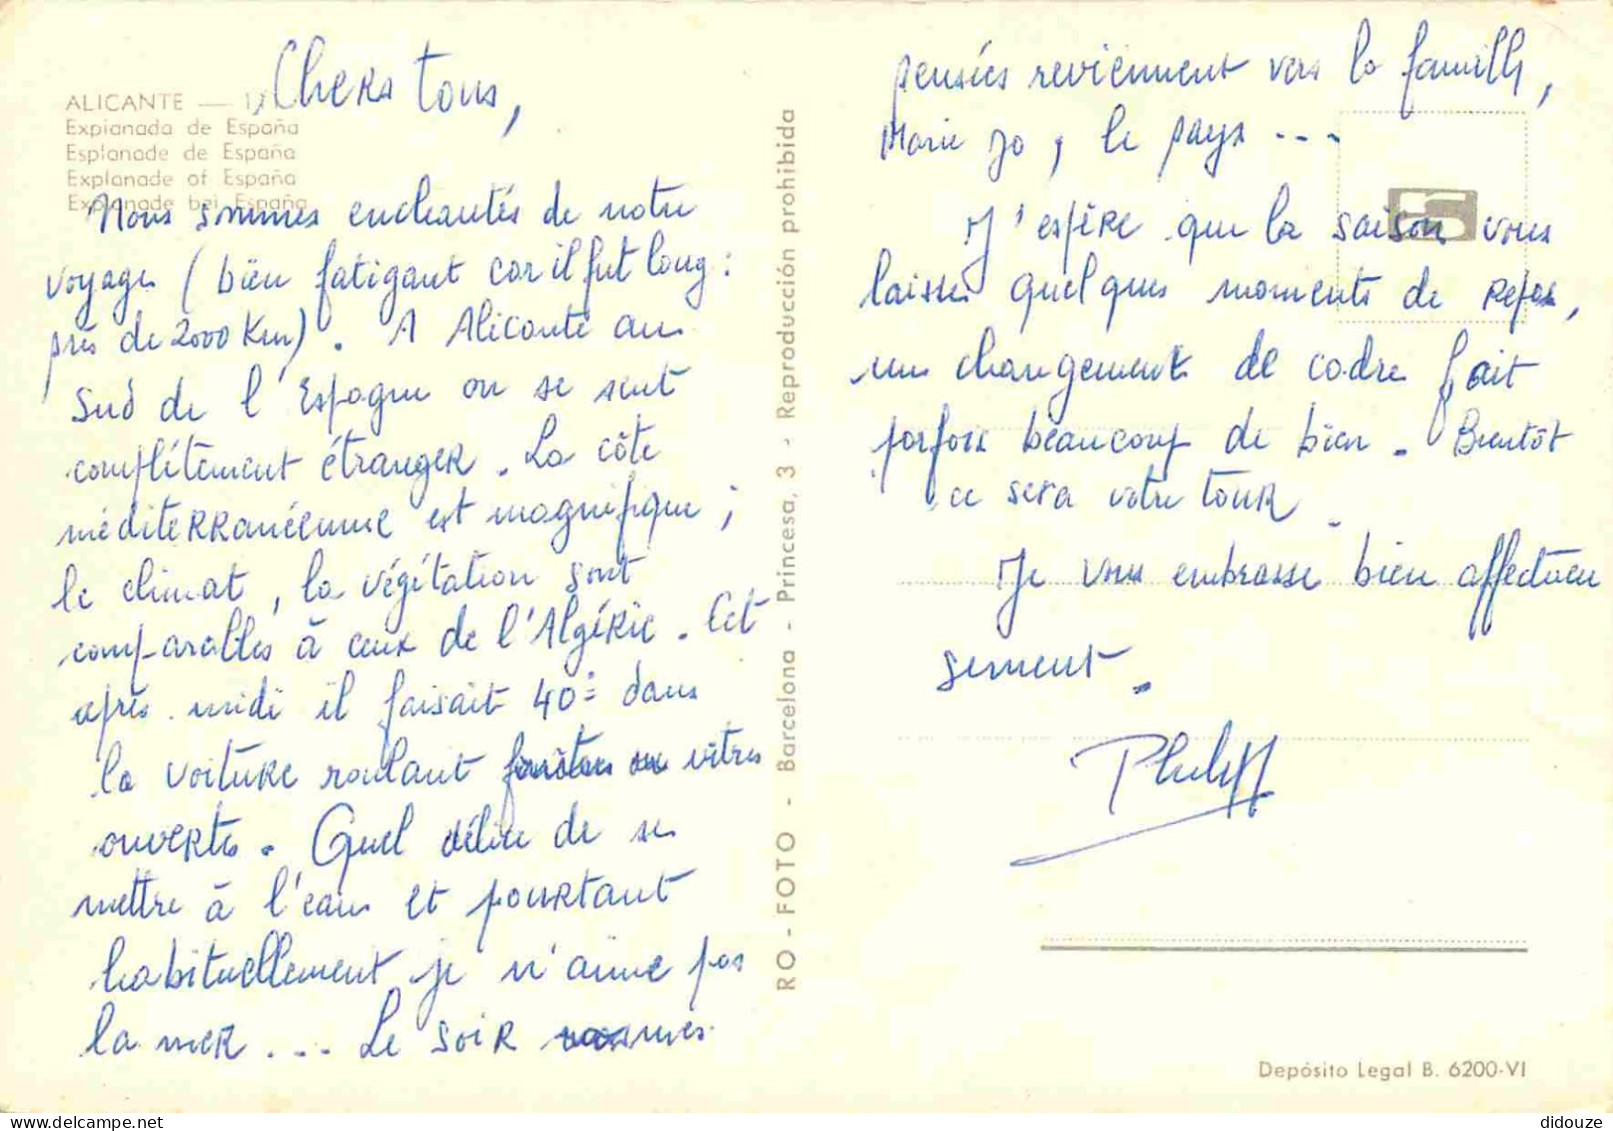 Chers tous,
ALICANTE —
Explanada de España
Esplanade de España
Explanade of España
Explanade bei España
Nous sommes enchantés de notre
voyage (bien fatigant car il fut long :
près de 2000 Km). A Alicante au
Sud de l'Espagne on se sent
complètement étranger. La côte
méditerranéenne est magnifique ;
le climat, la végétation sont
comparables à ceux de l'Algérie. Cet
après-midi il faisait 40° dans
la voiture roulant vitres
ouvertes. Quel délice de se
mettre à l'eau et pourtant
habituellement je n'aime pas
la mer... Le soir mes
RO-FOTO - Barcelona - Princesa, 3 - Reproducción prohibida
pensées reviennent vers la famille,
Marie Jo, le pays ...
J'espère que la saison vous
laisse quelques moments de repos,
un changement de cadre fait
parfois beaucoup de bien. Bientôt
ce sera votre tour.
Je vous embrasse bien affectueu
sement.
Depósito Legal B. 6200-VI
didouze